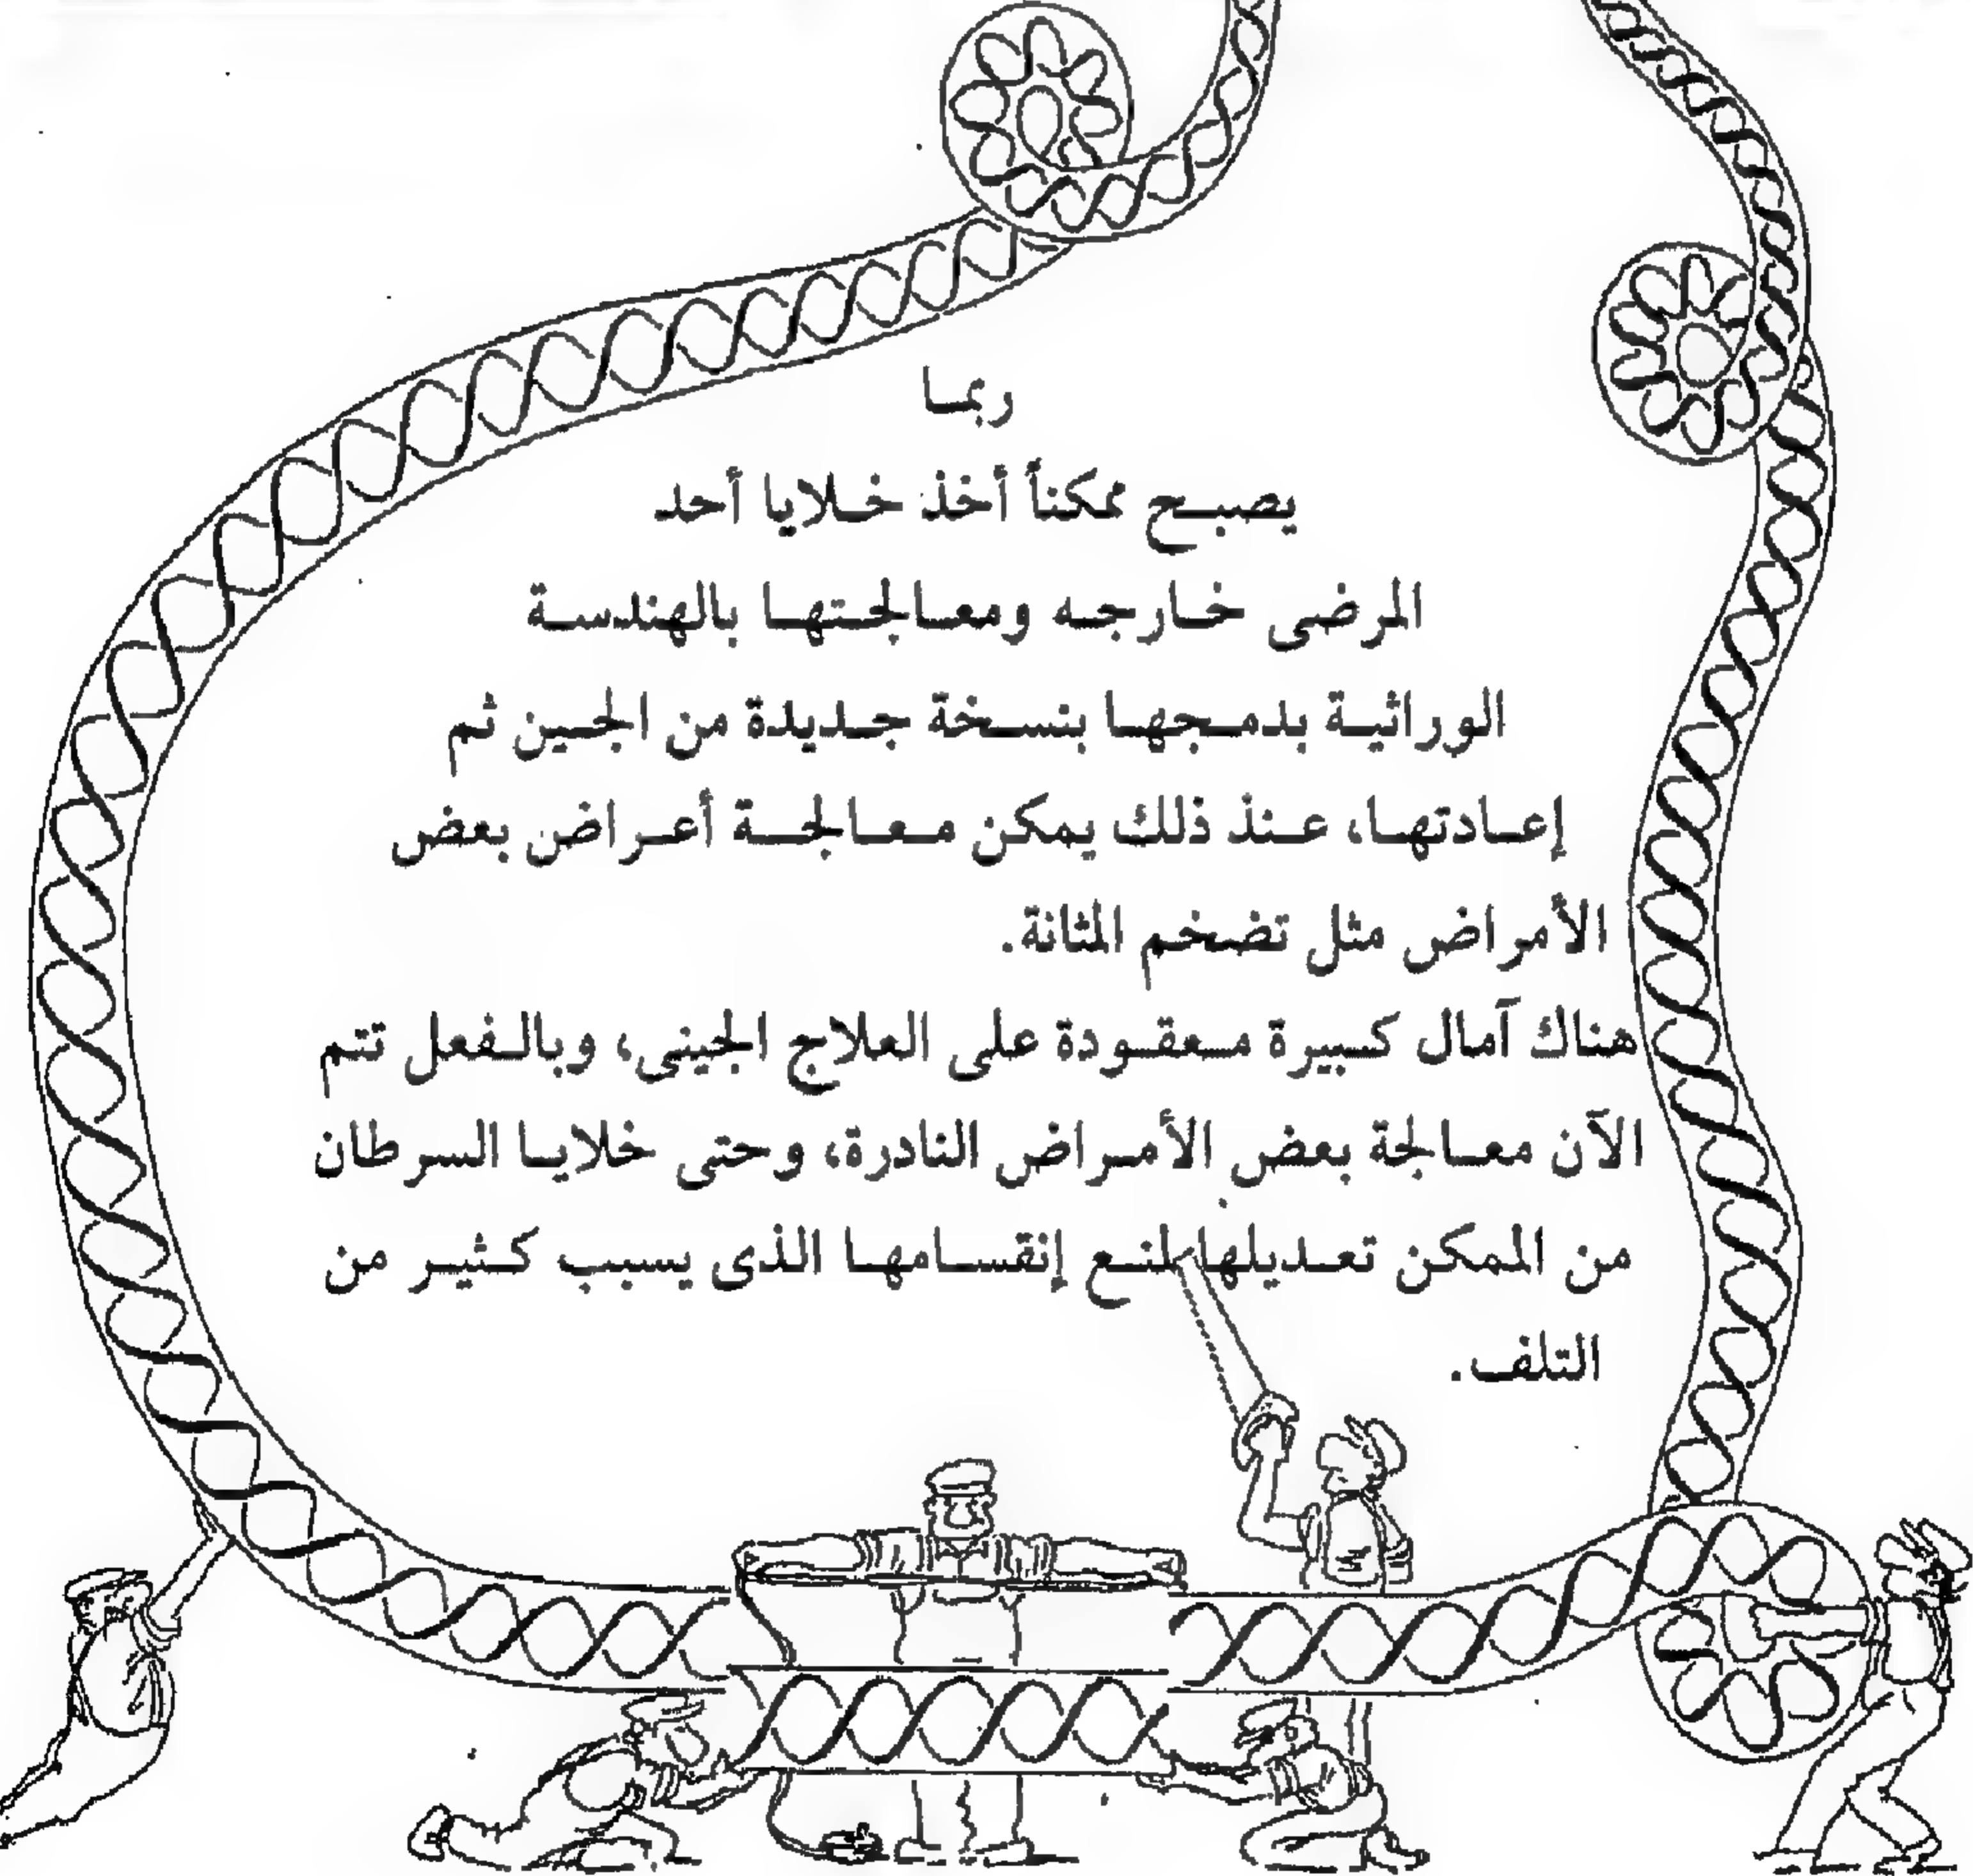 ربما
يصبح ممكناً أخذ خلايا أحد
المرضى خارجه ومعالجتها بالهندسة
الوراثية بدمجها بنسخة جديدة من الجين ثم
إعادتها، عنذ ذلك يمكن معالجة أعراض بعض
الأمراض مثل تضخم المثانة.
هناك آمال كبيرة معقودة على العلاج الجينى، وبالفعل تتم
الآن معالجة بعض الأمراض النادرة، وحتى خلايا السرطان
من الممكن تعديلها لمنع إنقسامها الذى يسبب كثير من
التلف.